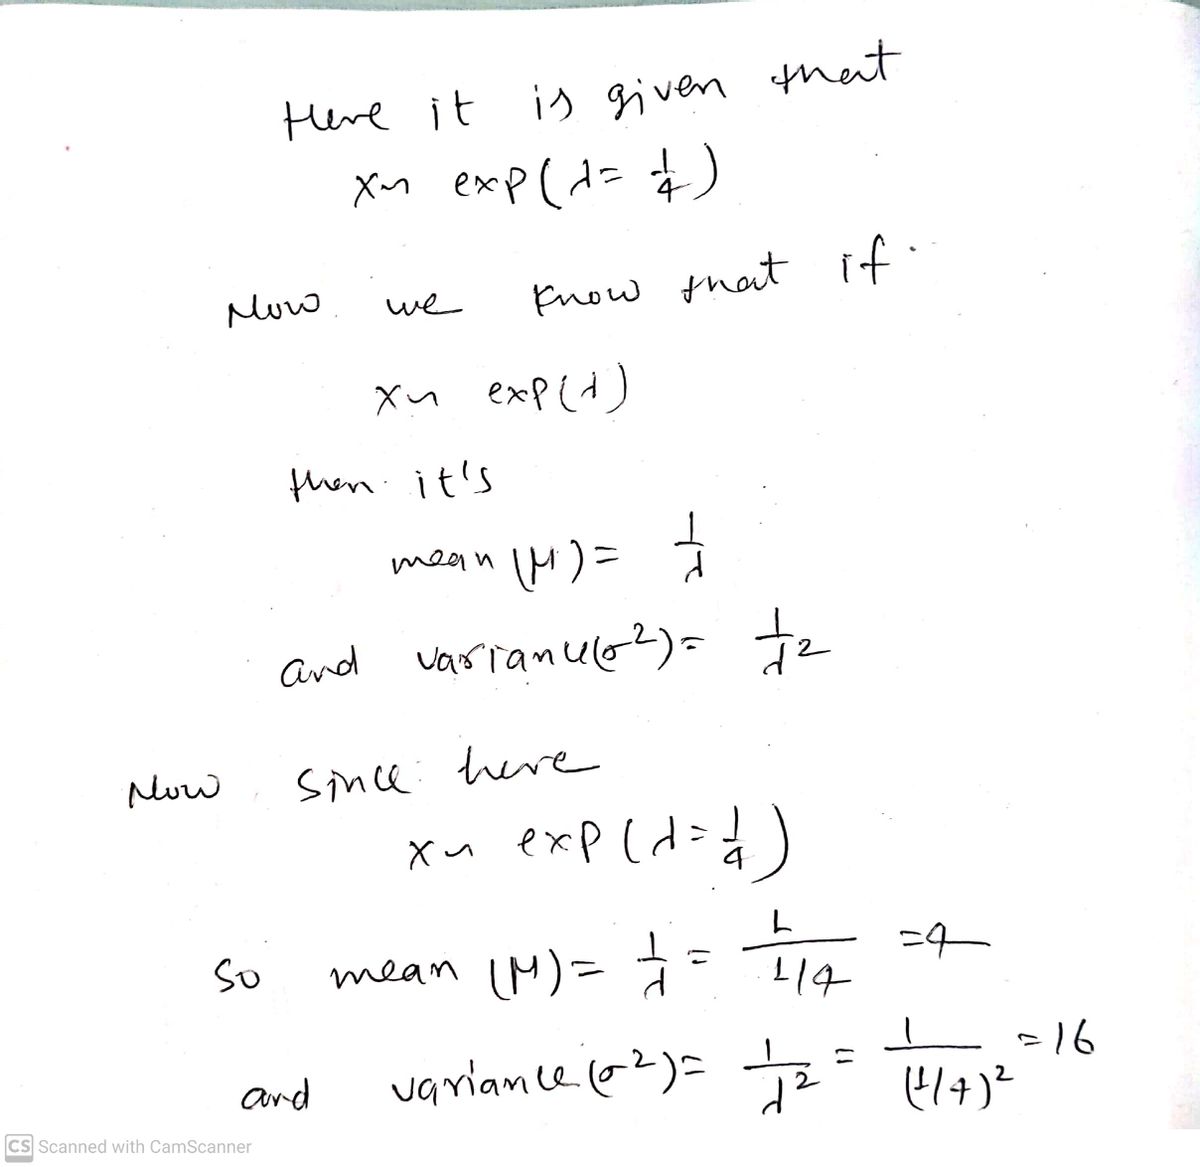 Here it is given that
X~ exp(λ= 1/4)
Now we know that if.
X~ exp(λ)
then it's
mean (μ) = 1/λ
and variance(σ²)= 1/λ²
Now since here
X~ exp(λ=1/4)
So mean (μ)= 1/λ = 1/(1/4) =4
and variance(σ²)= 1/λ² = 1/(1/4)² =16
CS Scanned with CamScanner